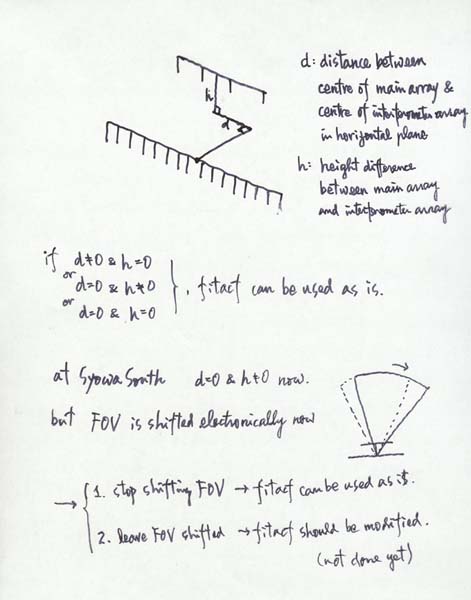 d: distance between
centre of main array &
centre of interferometer array
in horizontal plane
h
d
h: height difference
between main array
and interferometer array
if d≠0 & h=0
or d=0 & h≠0
or d=0 & h=0
}, fitacf can be used as is.
at Syowa South d=0 & h≠0 now.
but FOV is shifted electronically now
→ { 1. stop shifting FOV → fitacf can be used as is.
2. leave FOV shifted → fitacf should be modified.
(not done yet)